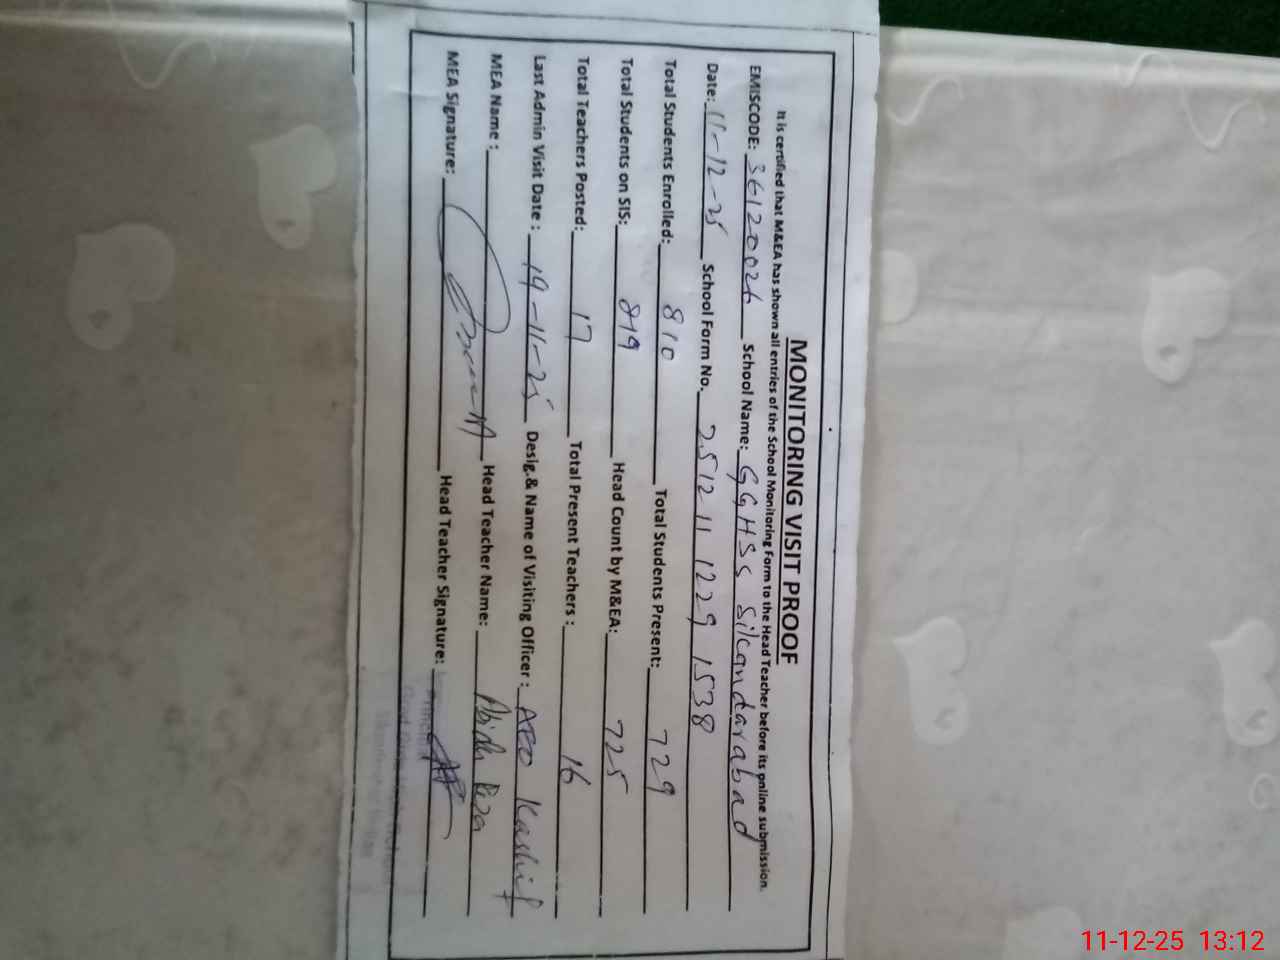 MONITORING VISIT PROOF
It is certified that M&EA has shown all entries of the School Monitoring Form to the Head Teacher before its online submission.
EMISCODE: 36120026 School Name: GGHSS Sikandarabad
Date: 11-12-25 School Form No. 2512 11 1229 1538
Total Students Enrolled: 810 Total Students Present: 729
Total Students on SIS: 819 Head Count by M&EA: 725
Total Teachers Posted: 17 Total Present Teachers : 16
Last Admin Visit Date : 19-11-25 Desig.& Name of Visiting Officer : AEO Kashif
MEA Name : Head Teacher Name:
MEA Signature: Head Teacher Signature:
11-12-25 13:12